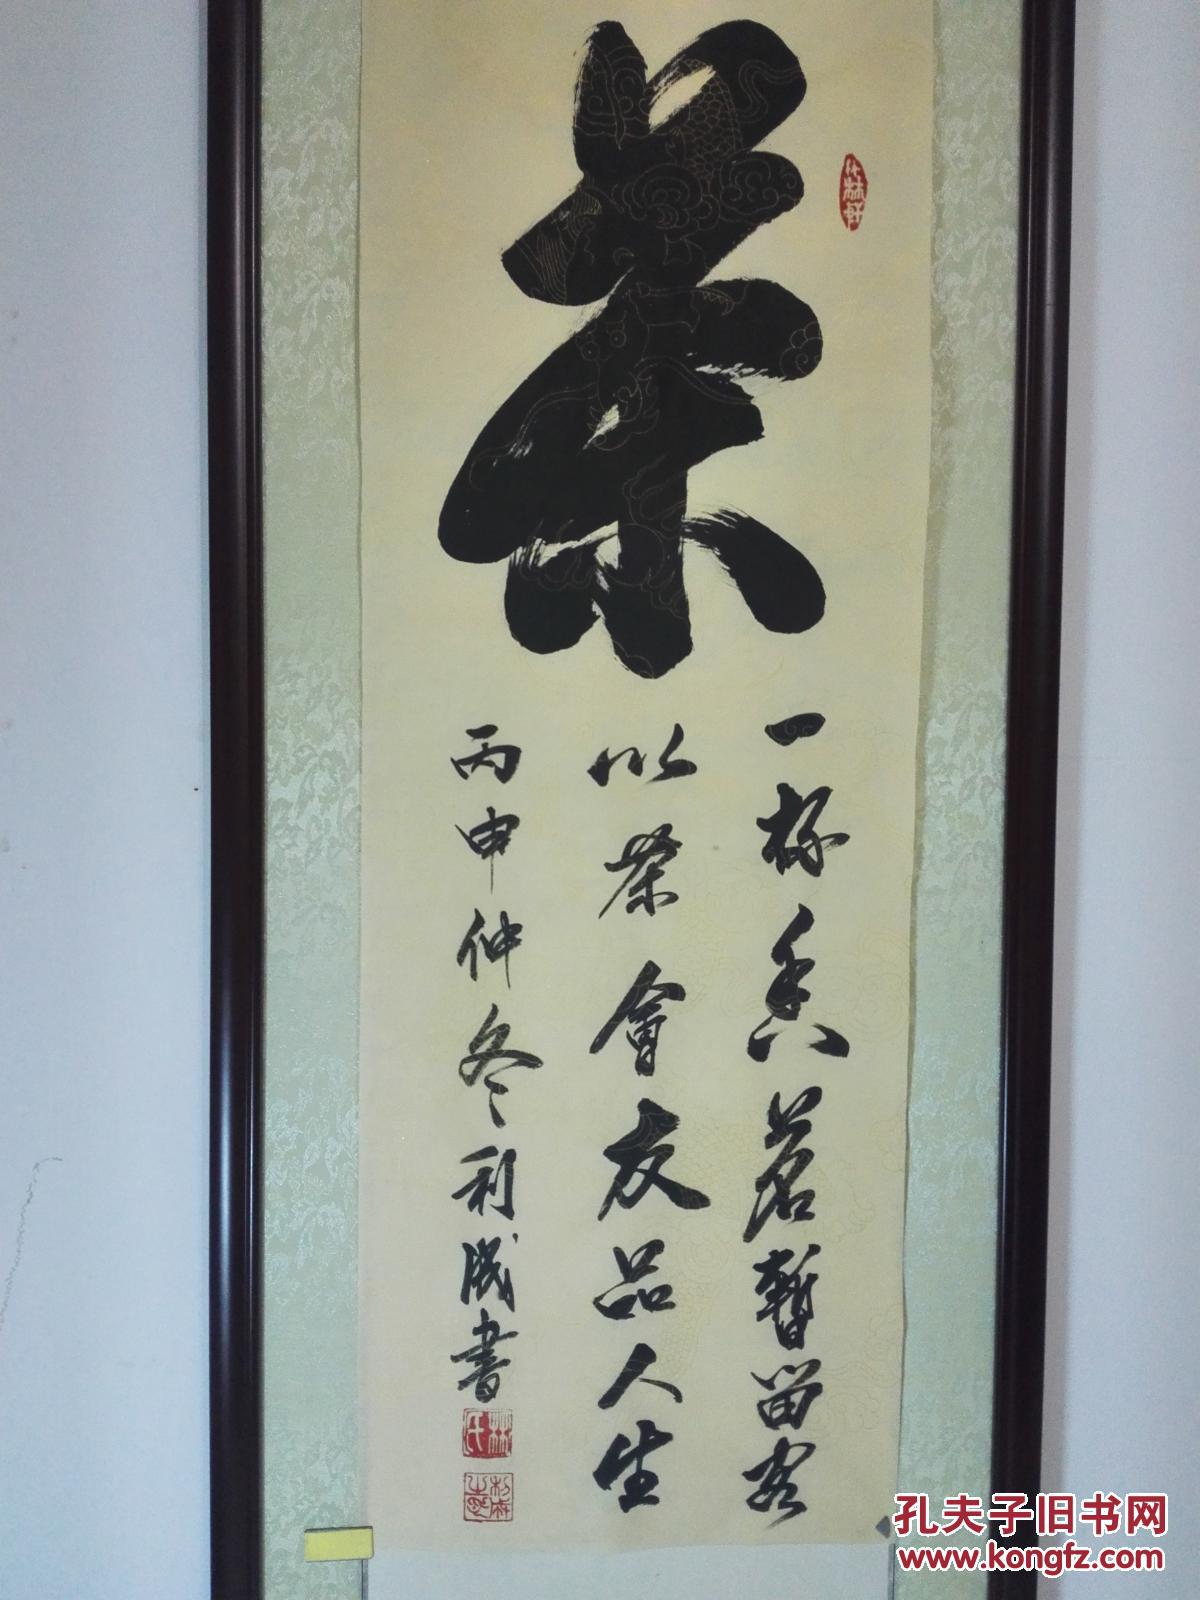 茶
一杯香茗暫留客
以茶會友品人生
丙申仲冬利成書
林氏
孔夫子旧书网
www.kongfz.com